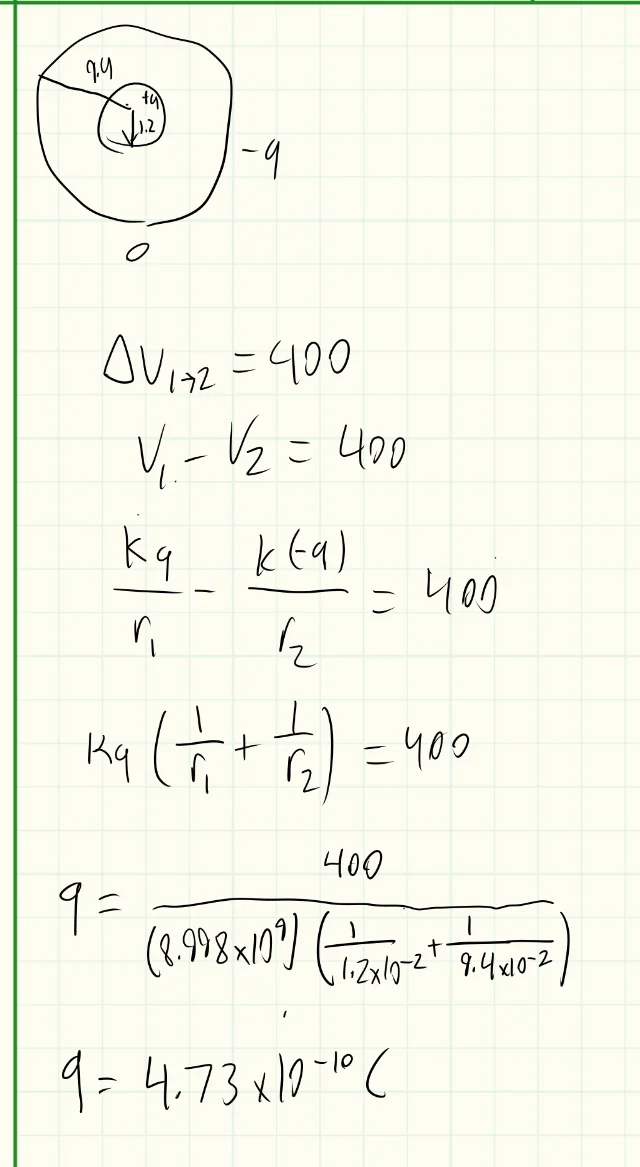 9.4
+q
1.2
-q
0
ΔV₁→₂ = 400
V₁ - V₂ = 400
kq/r₁ - k(-q)/r₂ = 400
kq (1/r₁ + 1/r₂) = 400
q = 400 / (8.998×10⁹) (1/1.2×10⁻² + 1/9.4×10⁻²)
q = 4.73×10⁻¹⁰ C